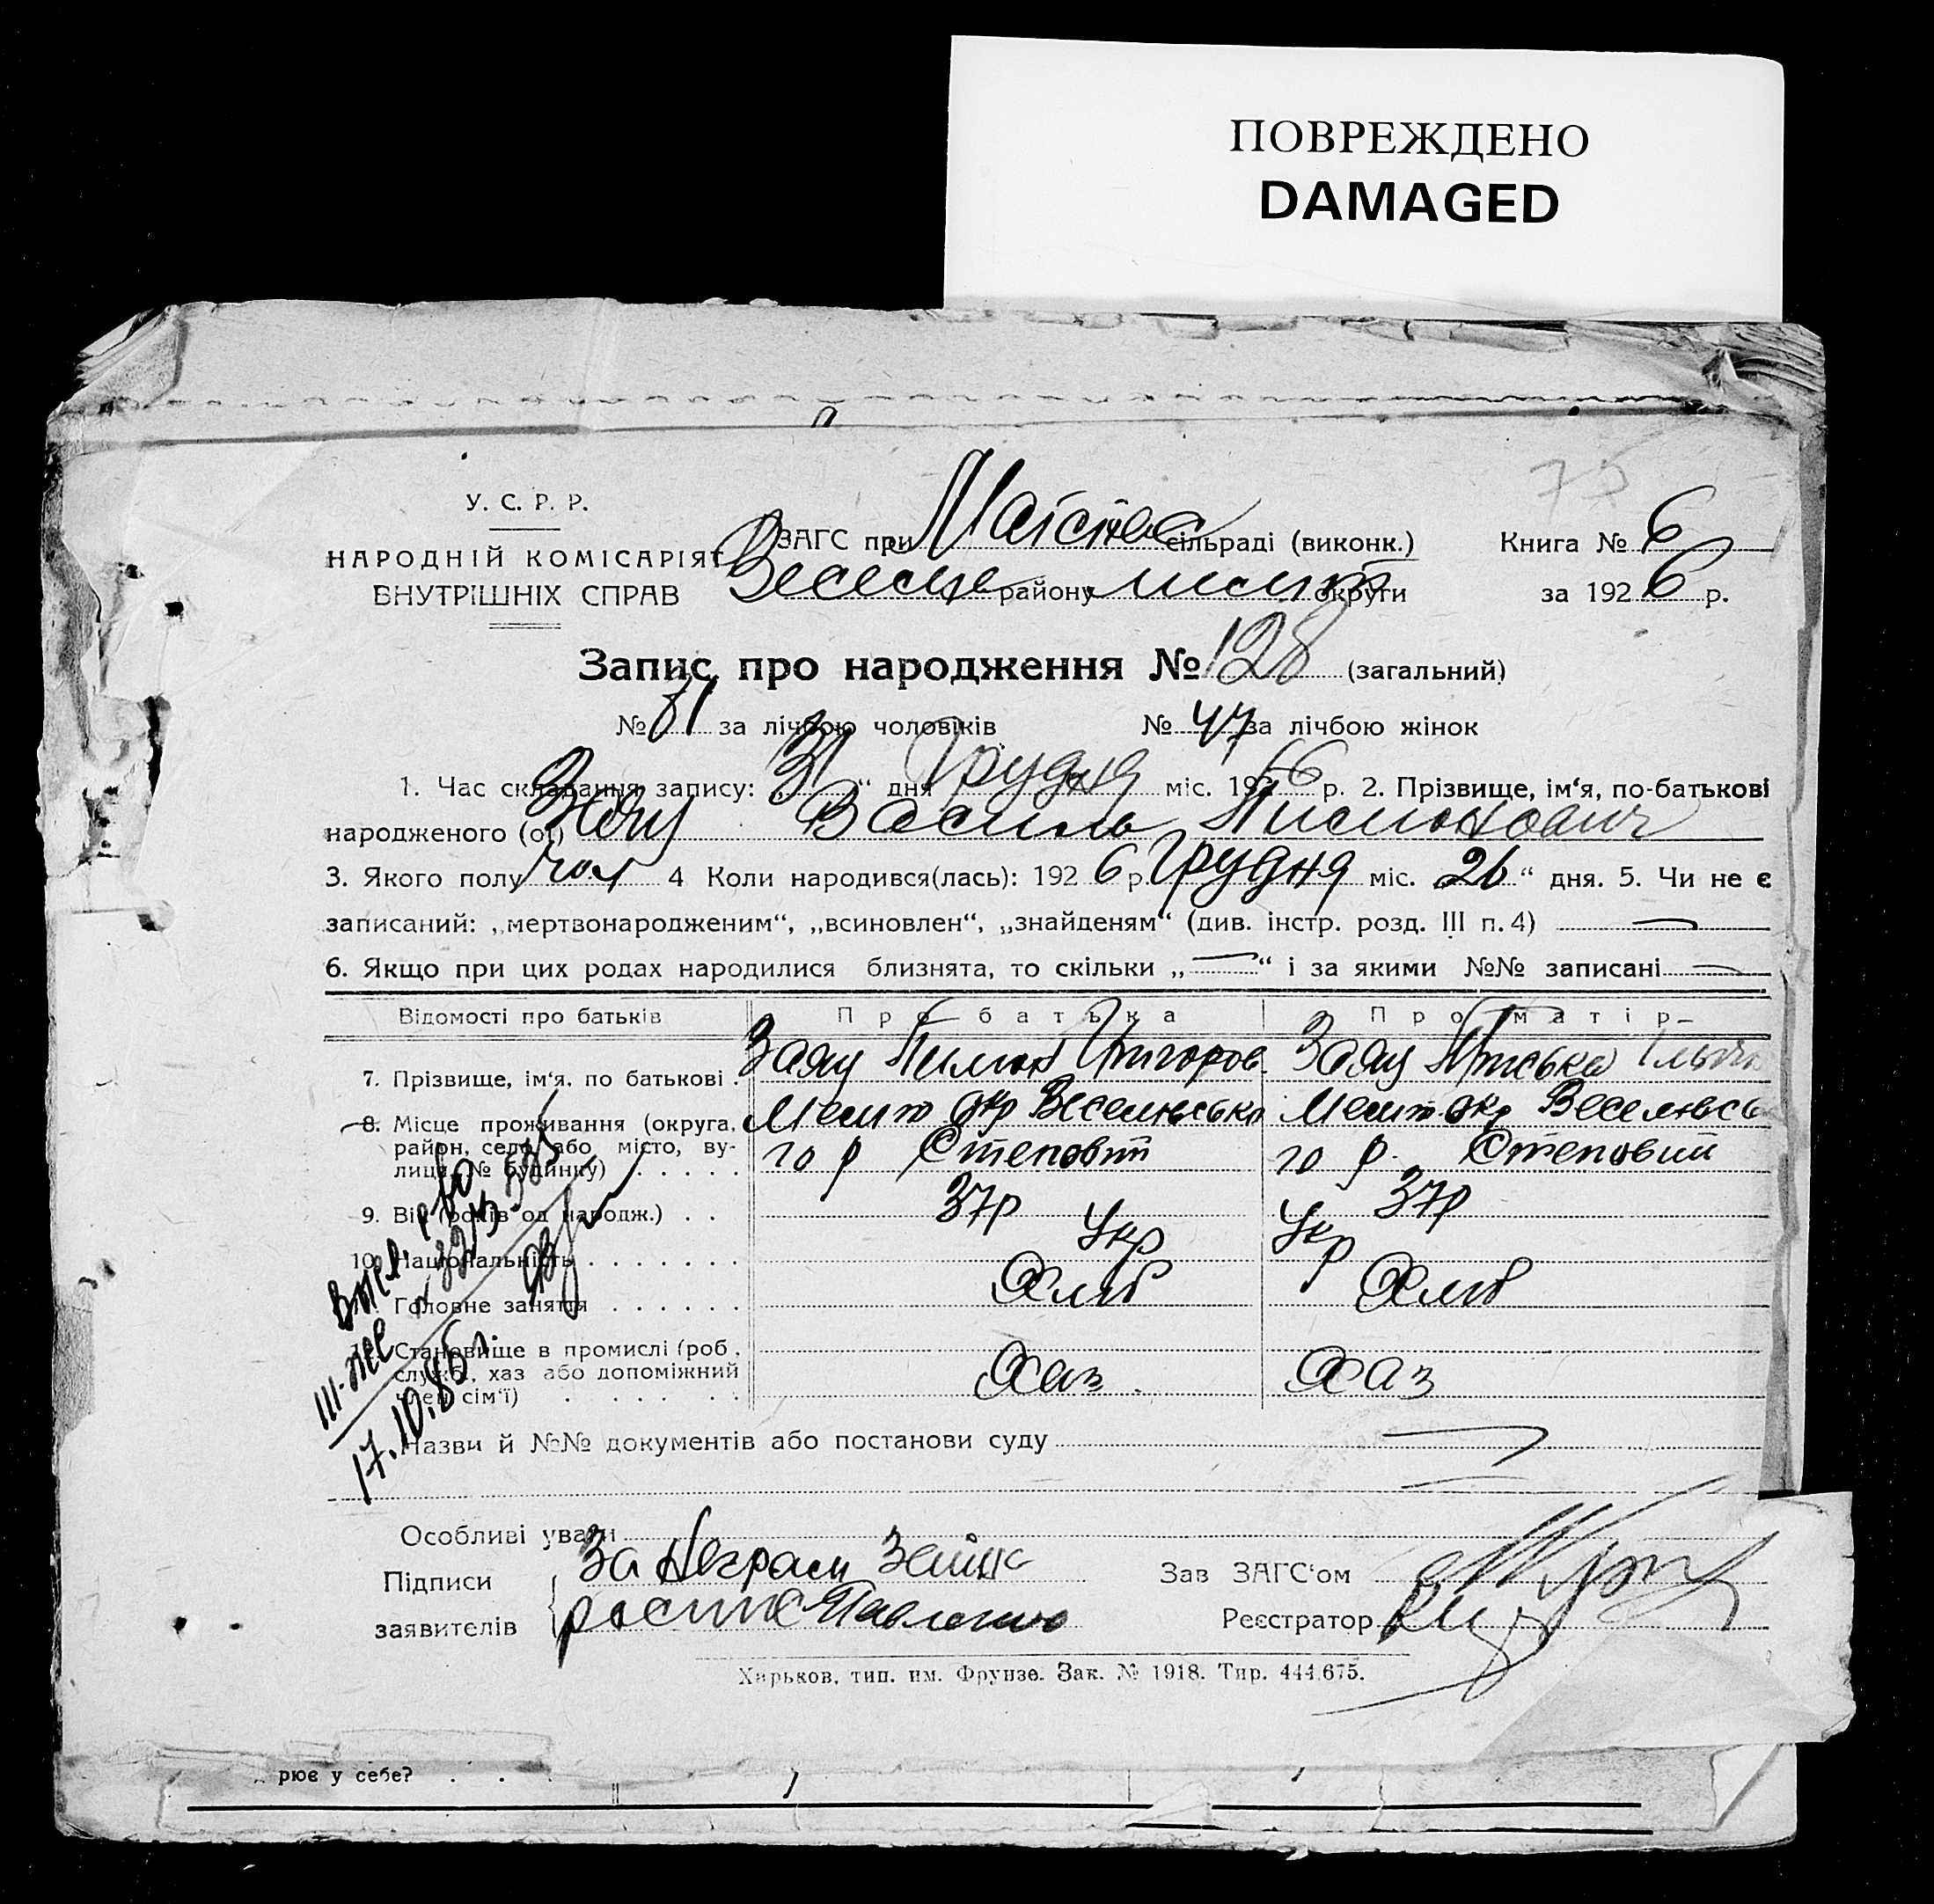 ПОВРЕЖДЕНО
DAMAGED
75
У. С. Р. Р.
НАРОДНІЙ КОМІСАРІЯТ
ВНУТРІШНІХ СПРАВ
ЗАГС при сільраді (виконк.)
району округи
Книга № 6
за 1926 р.
Запис про народження № 128 (загальний)
№ 81 за лічбою чоловіків № 47 за лічбою жінок
1. Час складання запису: 31 “ дня Грудня міс. 1926 р. 2. Прізвище, ім‘я, по-батькові
народженого (ої) Заяц Василь Пилипович
3. Якого полу чол 4 Коли народився(лась): 1926 р. Грудня міс. „26“ дня. 5. Чи не є
записаний: „мертвонародженим“, „всиновлен“, „знайденям“ (див. інстр. розд. III п. 4) —
6. Якщо при цих родах народилися близнята, то скільки „—“ і за якими №№ записані —
Відомості про батьків Про батька Про матір
7. Прізвище, ім‘я, по батькові . Заяц Пилип Григоров Заяц
8. Місце проживання (округа, Мелит окр Веселівсько Мелит. окр Веселівсь
район, село, або місто, ву- го р Степовий го р. Степовий
лиця, № будинку) . . . .
9. Вік (років од народж.) . . 37р 37р
10. Національність . . . . . . . Укр Укр
Головне заняття . . . . . . Хліб Хліб
Становище в промислі (роб., службі, хаз або допоміжний
член сім‘ї) . . . . . Хаз Хаз
17.10.86
Назви й №№ документів або постанови суду
Особливі уваги
Підписи За неграм Заяц
заявителів
Зав ЗАГС‘ом
Реєстратор
Харьков, тип. им. Фрунзе. Зак. № 1918. Тир. 444.675.
рює у себе? . . .